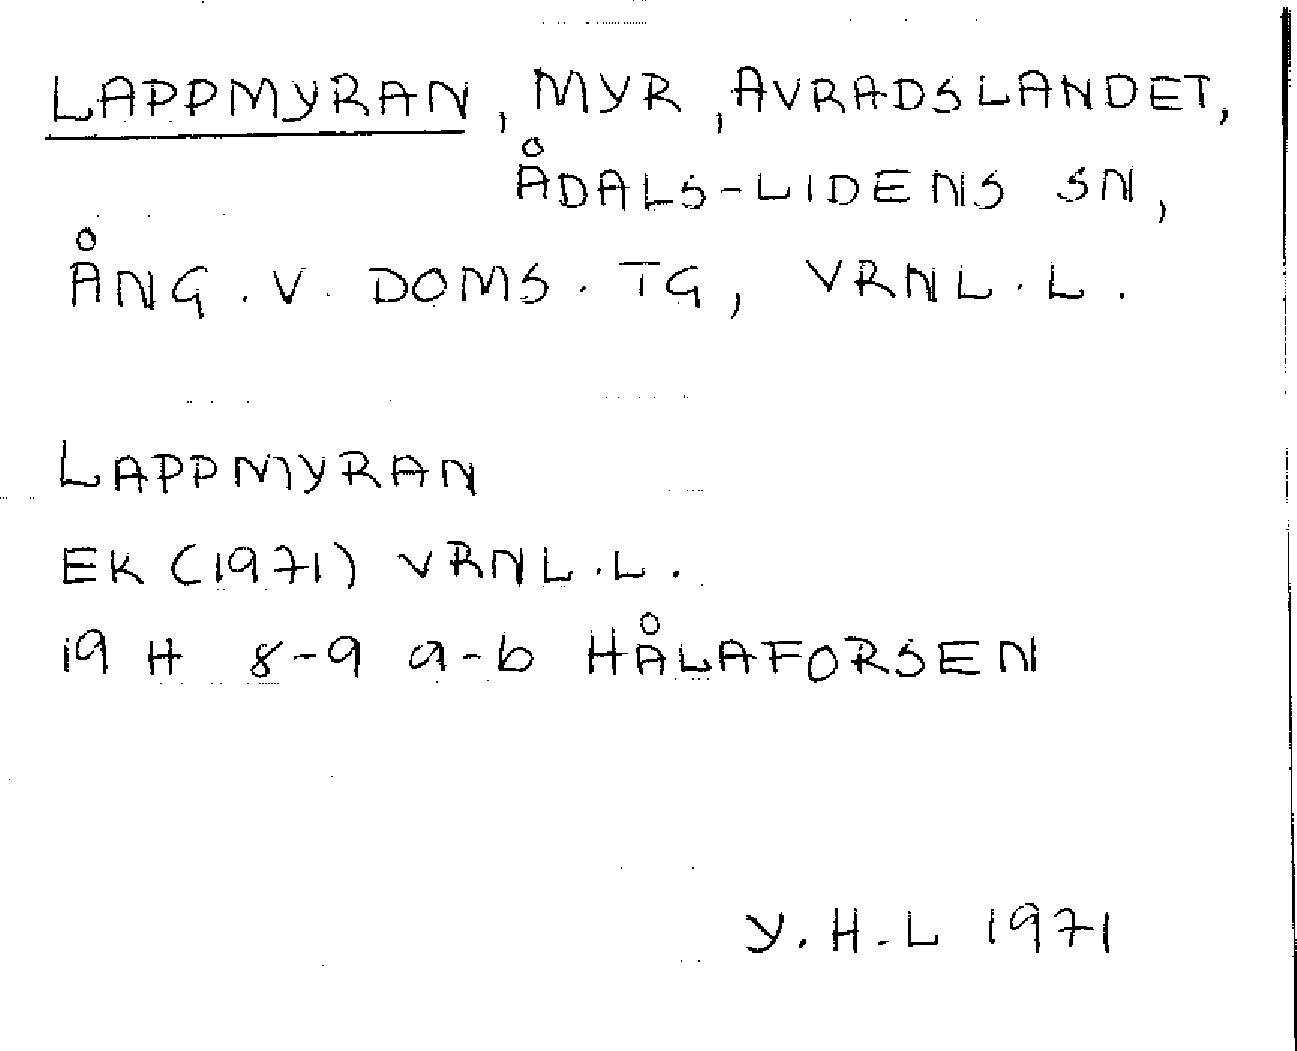 LAPPMYRAN, MYR, AVRADSLANDET,
ÅDALS-LIDENS SN,
ÅNG. V. DOMS. TG, VRNL. L.
LAPPMYRAN
EK (1971) VRNL. L.
19 H 8-9 a-b HÅLAFORSEN
Y. H. L 1971